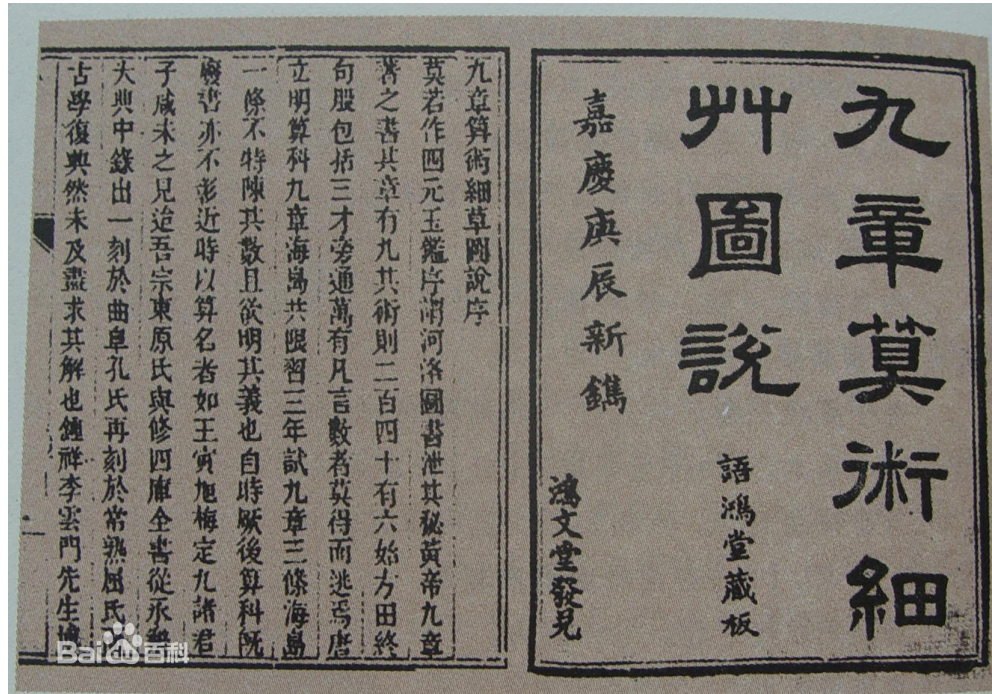 九章算術細
艸圖說
語鴻堂藏板
嘉慶庚辰新鐫
鴻文堂發兌
九章算術細草圖說序
莫若作四元玉鑑序謂河洛圖書泄其秘黃帝九章
著之書其章有九其術則二百四十有六始方田終
句股包括三才旁通萬有凡言數者莫得而逃焉唐
立明算科九章海島共限習三年試九章三條海島
一條不特陳其數且欲明其義也自時厥後算科既
廢書亦不彰近時以算名者如王寅旭梅定九諸君
子咸未之見迨吾宗東原氏與修四庫全書從永樂
大典中錄出一刻於曲阜孔氏再刻於常熟屈氏
古學復興然未及盡求其解也鍾祥李雲門先生博
Bai百科